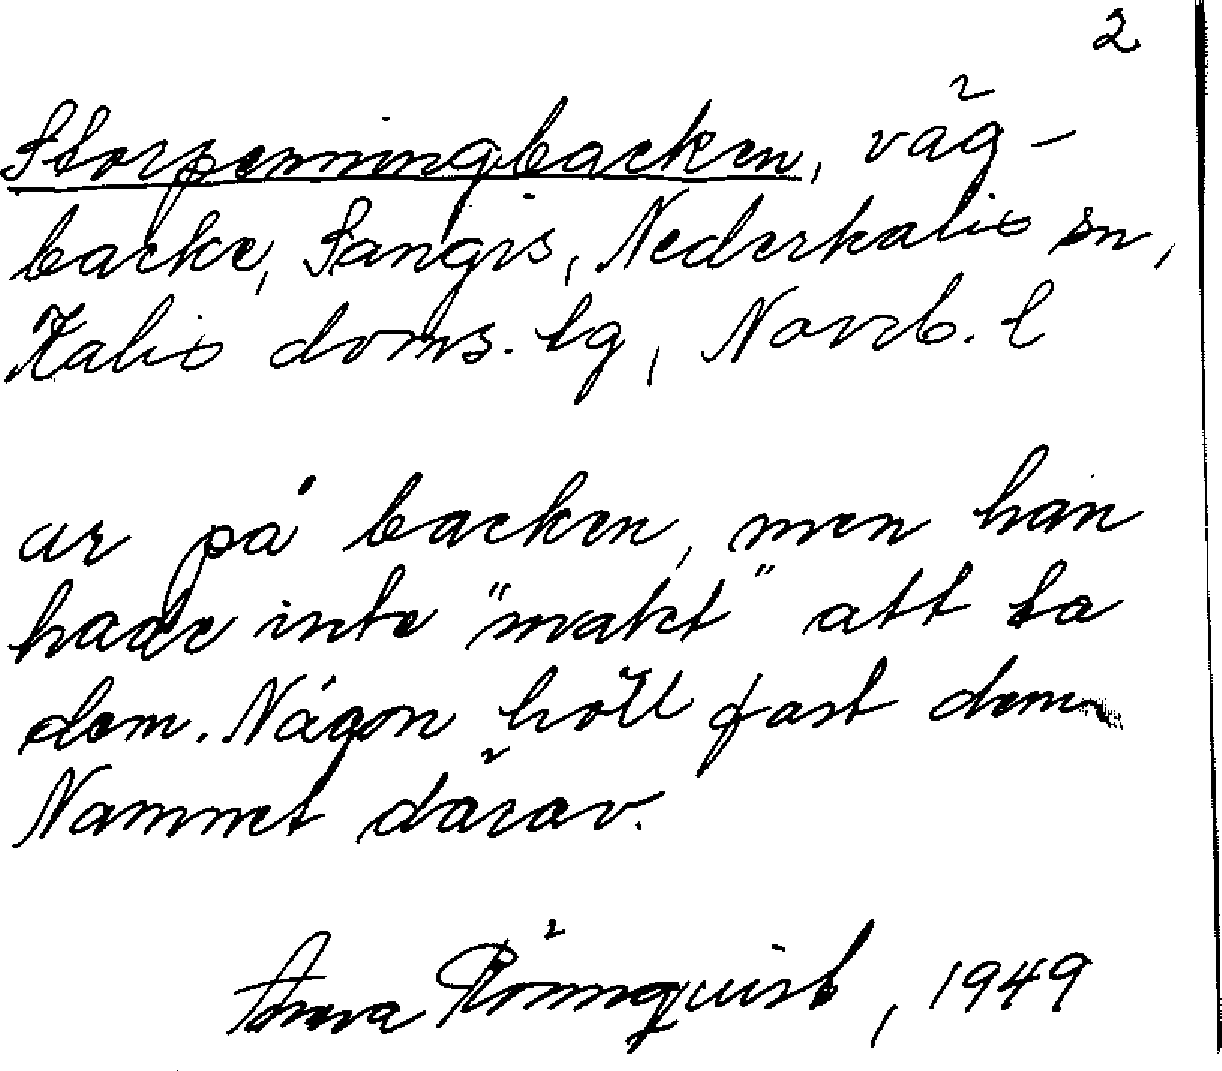 2
Storpenningbacken, väg-
backe, Sangis, Nederkalix sn,
Kalix doms. lg, Norrb. l
ar på backen, men han
hade inte "makt" att ta
dem. Någon höll fast dem
Namnet därav.
Anna Rönnquist, 1949